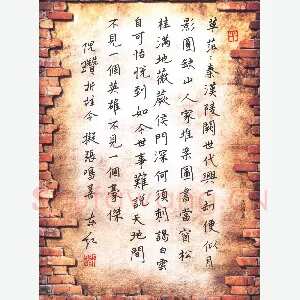 草茫秦漢陵闕世代興亡却便似月
影圓缺山人家堆案圖書當窗松
桂滿地薇蕨侯門深何須刺謁白雲
自可怡悅到如今世事難說天地間
不見一個英雄不見一個豪傑
倪瓚折桂令擬張鳴善 東紅